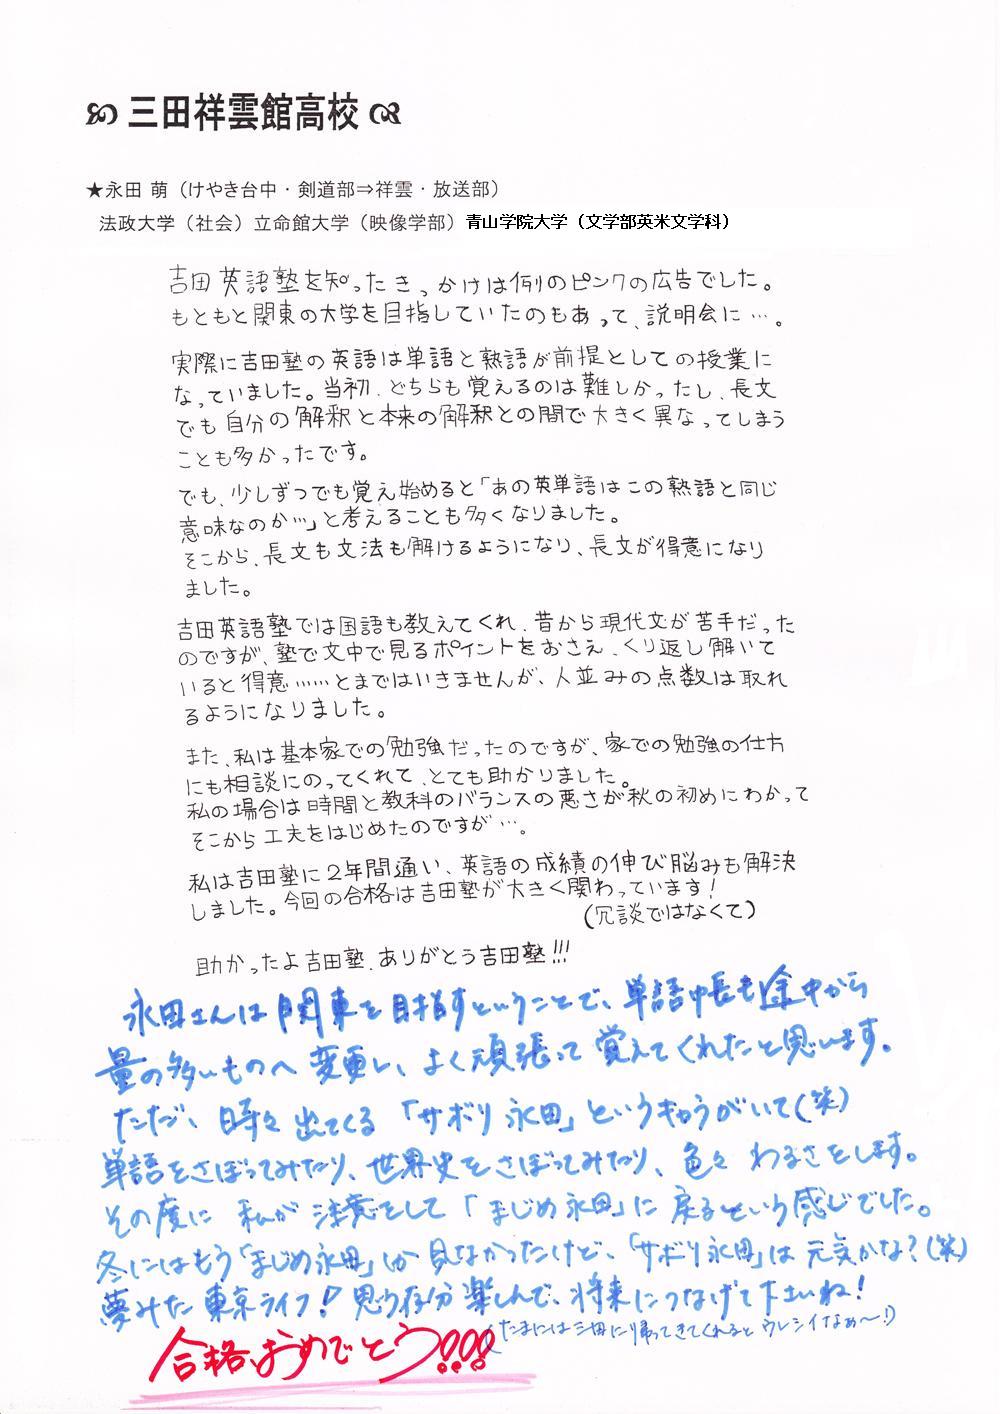 三田祥雲館高校
★永田 萌（けやき台中・剣道部⇒祥雲・放送部）
法政大学（社会）立命館大学（映像学部）青山学院大学（文学部英米文学科）
吉田英語塾を知ったきっかけは例のピンクの広告でした。
もともと関東の大学を目指していたのもあって、説明会に…。
実際に吉田塾の英語は単語と熟語が前提としての授業に
なっていました。当初、どちらも覚えるのは難しかったし、長文
でも自分の解釈と本来の解釈との間で大きく異なってしまう
ことも多かったです。
でも、少しずつでも覚え始めると「あの英単語はこの熟語と同じ
意味なのか…」と考えることも多くなりました。
そこから、長文も文法も解けるようになり、長文が得意になり
ました。
吉田英語塾では国語も教えてくれ、昔から現代文が苦手だった
のですが、塾で文中で見るポイントをおさえ、くり返し解いて
いると得意……とまではいきませんが、人並みの点数は取れ
るようになりました。
また、私は基本家での勉強だったのですが、家での勉強の仕方
にも相談にのってくれて、とても助かりました。
私の場合は時間と教科のバランスの悪さが秋の初めにわかって
そこから工夫をはじめたのですが…。
私は吉田塾に2年間通い、英語の成績の伸び悩みも解決
しました。今回の合格は吉田塾が大きく関わっています！
（冗談ではなくて）
助かったよ吉田塾、ありがとう吉田塾!!!
永田さんは関東を目指すということで、単語帳も途中から
量の多いものへ変更し、よく頑張って覚えてくれたと思います。
ただ、時々出てくる「サボり永田」というキャラがいて（笑）
単語をさぼってみたり、世界史をさぼってみたり、色々わるさをします。
その度に私が注意をして「まじめ永田」に戻るという感じでした。
冬にはもう「まじめ永田」しか見なかったけど、「サボり永田」は元気かな？（笑）
夢みた東京ライフ！思う存分楽しんで、将来につなげて下さいね！
（たまには三田に帰ってきてくれるとウレシイなぁ〜！）
合格、おめでとう!!!